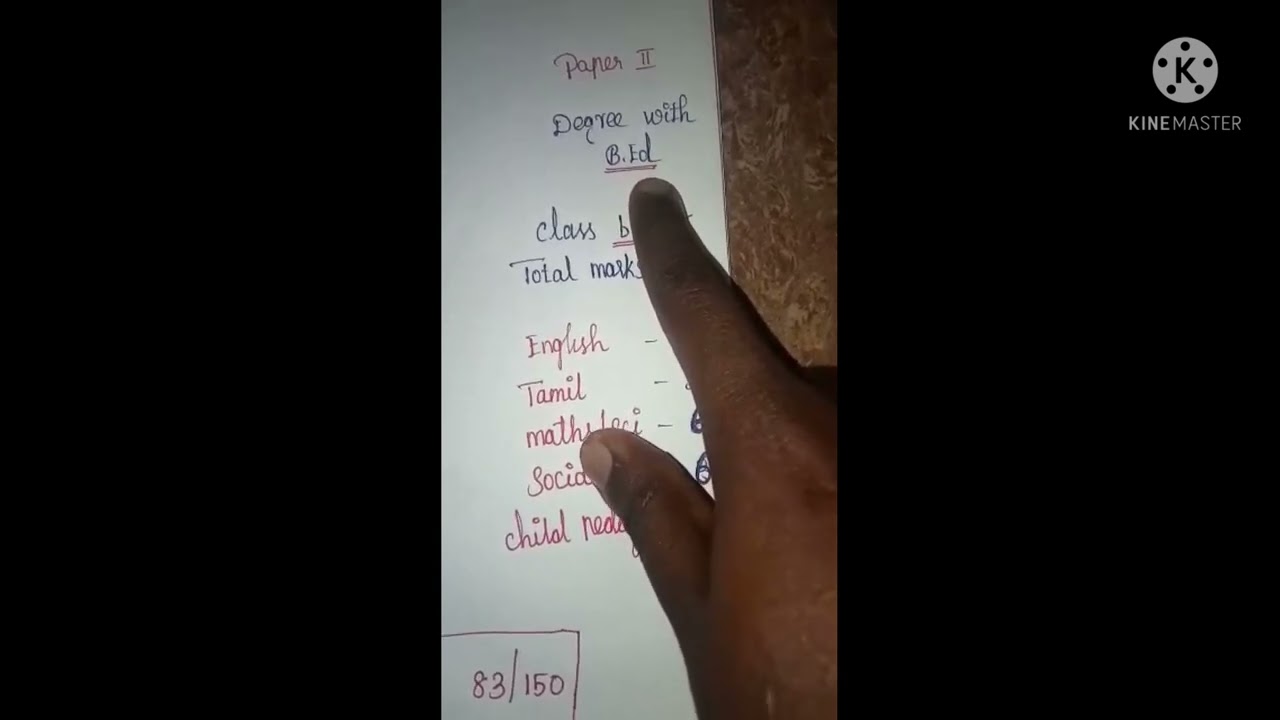 Paper II
Degree with
B.Ed
class
Total marks
English -
Tamil -
maths/sci -
child
83/150
KINEMASTER